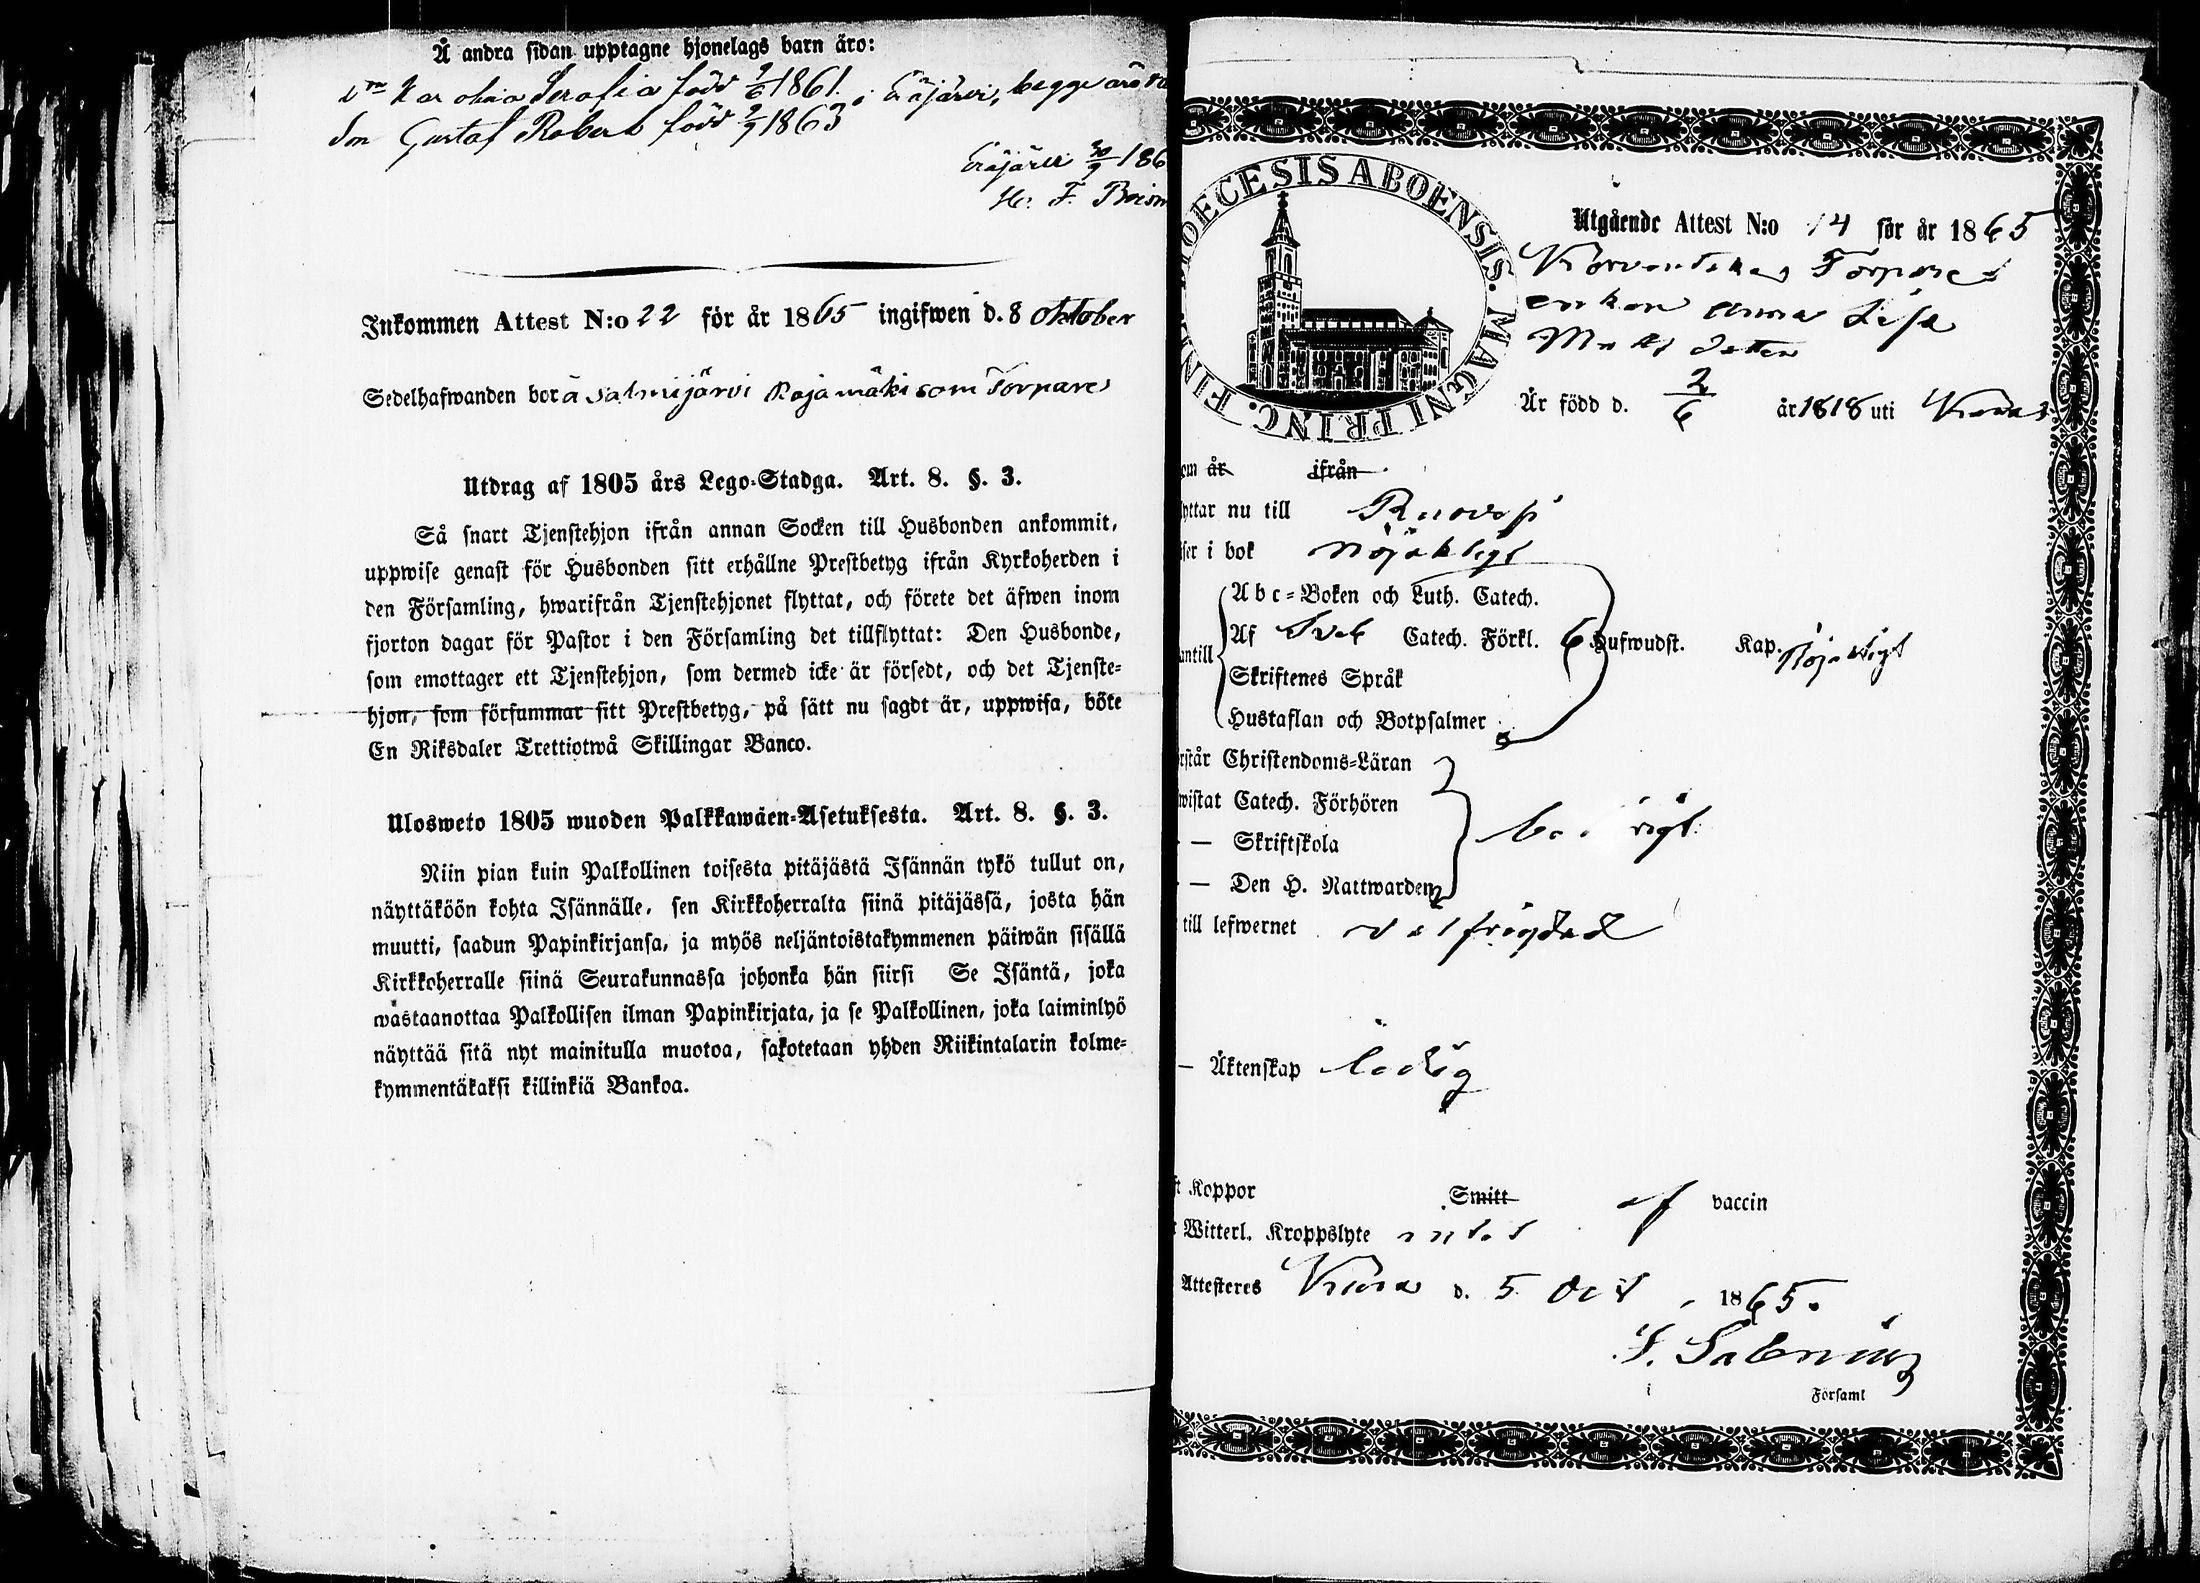 Å andra sidan upptagne hjonelags barn äro:
Karolina Serafia född 2/6 1861. i Eräjärvi, begge äro
Son Gustaf Robert född 2/9 1863
Eräjärvi 30/9 186
F.
Inkommen Attest N:o 22 för år 1865 ingifwen d. 8 Oktober
Sedelhafwanden bor å Salmijärvi Rajamäki som Torpare
Utdrag af 1805 års Lego-Stadga. Art. 8. §. 3.
Så snart Tjenstehjon ifrån annan Socken till Husbonden ankommit,
uppwise genast för Husbonden sitt erhållne Prestbetyg ifrån Kyrkoherden i
den Församling, hwarifrån Tjenstehjonet flyttat, och förete det äfwen inom
fjorton dagar för Pastor i den Församling det tillflyttat: Den Husbonde,
som emottager ett Tjenstehjon, som dermed icke är försedt, och det Tjenste-
hjon, som försummar sitt Prestbetyg, på sätt nu sagdt är, uppwisa, böte
En Riksdaler Trettiotwå Skillingar Banco.
Ulosweto 1805 wuoden Palkkawäen-Asetuksesta. Art. 8. §. 3.
Niin pian kuin Palkollinen toisesta pitäjästä Isännän tykö tullut on,
näyttäköön kohta Isännälle, sen Kirkkoherralta siinä pitäjässä, josta hän
muutti, saadun Papinkirjansa, ja myös neljäntoistakymmenen päiwän sisällä
Kirkkoherralle siinä Seurakunnassa johonka hän siirsi Se Isäntä, joka
wastaanottaa Palkollisen ilman Papinkirjata, ja se Palkollinen, joka laiminlyö
näyttää sitä nyt mainitulla muotoa, sakotetaan yhden Riikintalarin kolme-
kymmentäkaksi killinkiä Bankoa.
DIOECESIS ABOENSIS. MAGNI PRINC. FIN
Utgående Attest N:o 14 för år 1865
Torpare
enkan Anna Lisa
Matts dotter
Är född d. 2/6 år 1818 uti
om år ifrån
yttar nu till Ruovesi
ser i bok nöjaktigt
Abc-Boken och Luth. Catech.
antill Af Sveb Catech. Förkl. 6 Hufwudst. Kap. Nöjaktigt
Skriftenes Språk
Hustaflan och Botpsalmer
rstår Christendoms-Läran
wistat Catech. Förhören
— Skriftskola
— Den H. Nattwarden
till lefwernet välfrägdad
— Äktenskap ledig
t Koppor Smitt af vaccin
Witterl. Kroppslyte intet
Attesteres d. 5 Oct 1865.
F. Salenius
i Församl